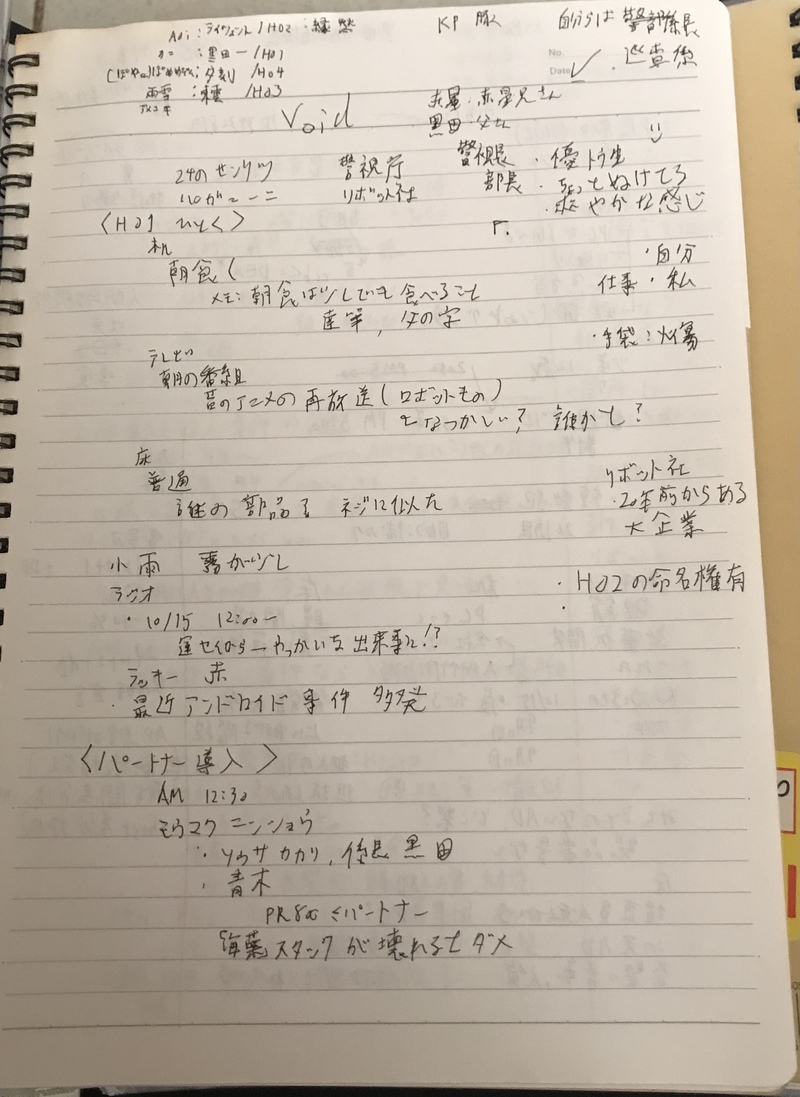 Aoi : ライヴェント / HO2 : 緑
KP 豚
自分らは 警部係長
: 黒田一 / HO1
No.
Date
巡査
: 夕刻 / HO4
雨雪 : 種 / HO3
Void
赤星・赤星兄さん
黒田 父さん
24のセンリツ
警視庁
警視長 ・優トウ生
110が一一二
リボット社
部長
やかな感じ
〈HO1 ひとく〉
机
朝食(
・自分
メモ: 朝食は少しでも食べること
仕事・私
達筆, 父の字
・手袋 : 火傷
テレビ
朝の番組
昔のアニメの再放送(ロボットもの)
なつかしい? 誰かと?
床
普通
リボット社
謎の部品 ネジに似た
・20年前からある
大企業
小雨 霧が少し
・HO2の命名権有
ラジオ
・10/15 12:00ー
運セイから一 やっかいな出来事に!?
ラッキー 赤
・最近アンドロイド事件 多発
〈パートナー導入〉
AM 12:30
モウマクニンショウ
・ソウサカカリ, 係長 黒田
・青木
PR800 ≦パートナー
海藻スタックが壊れるとダメ